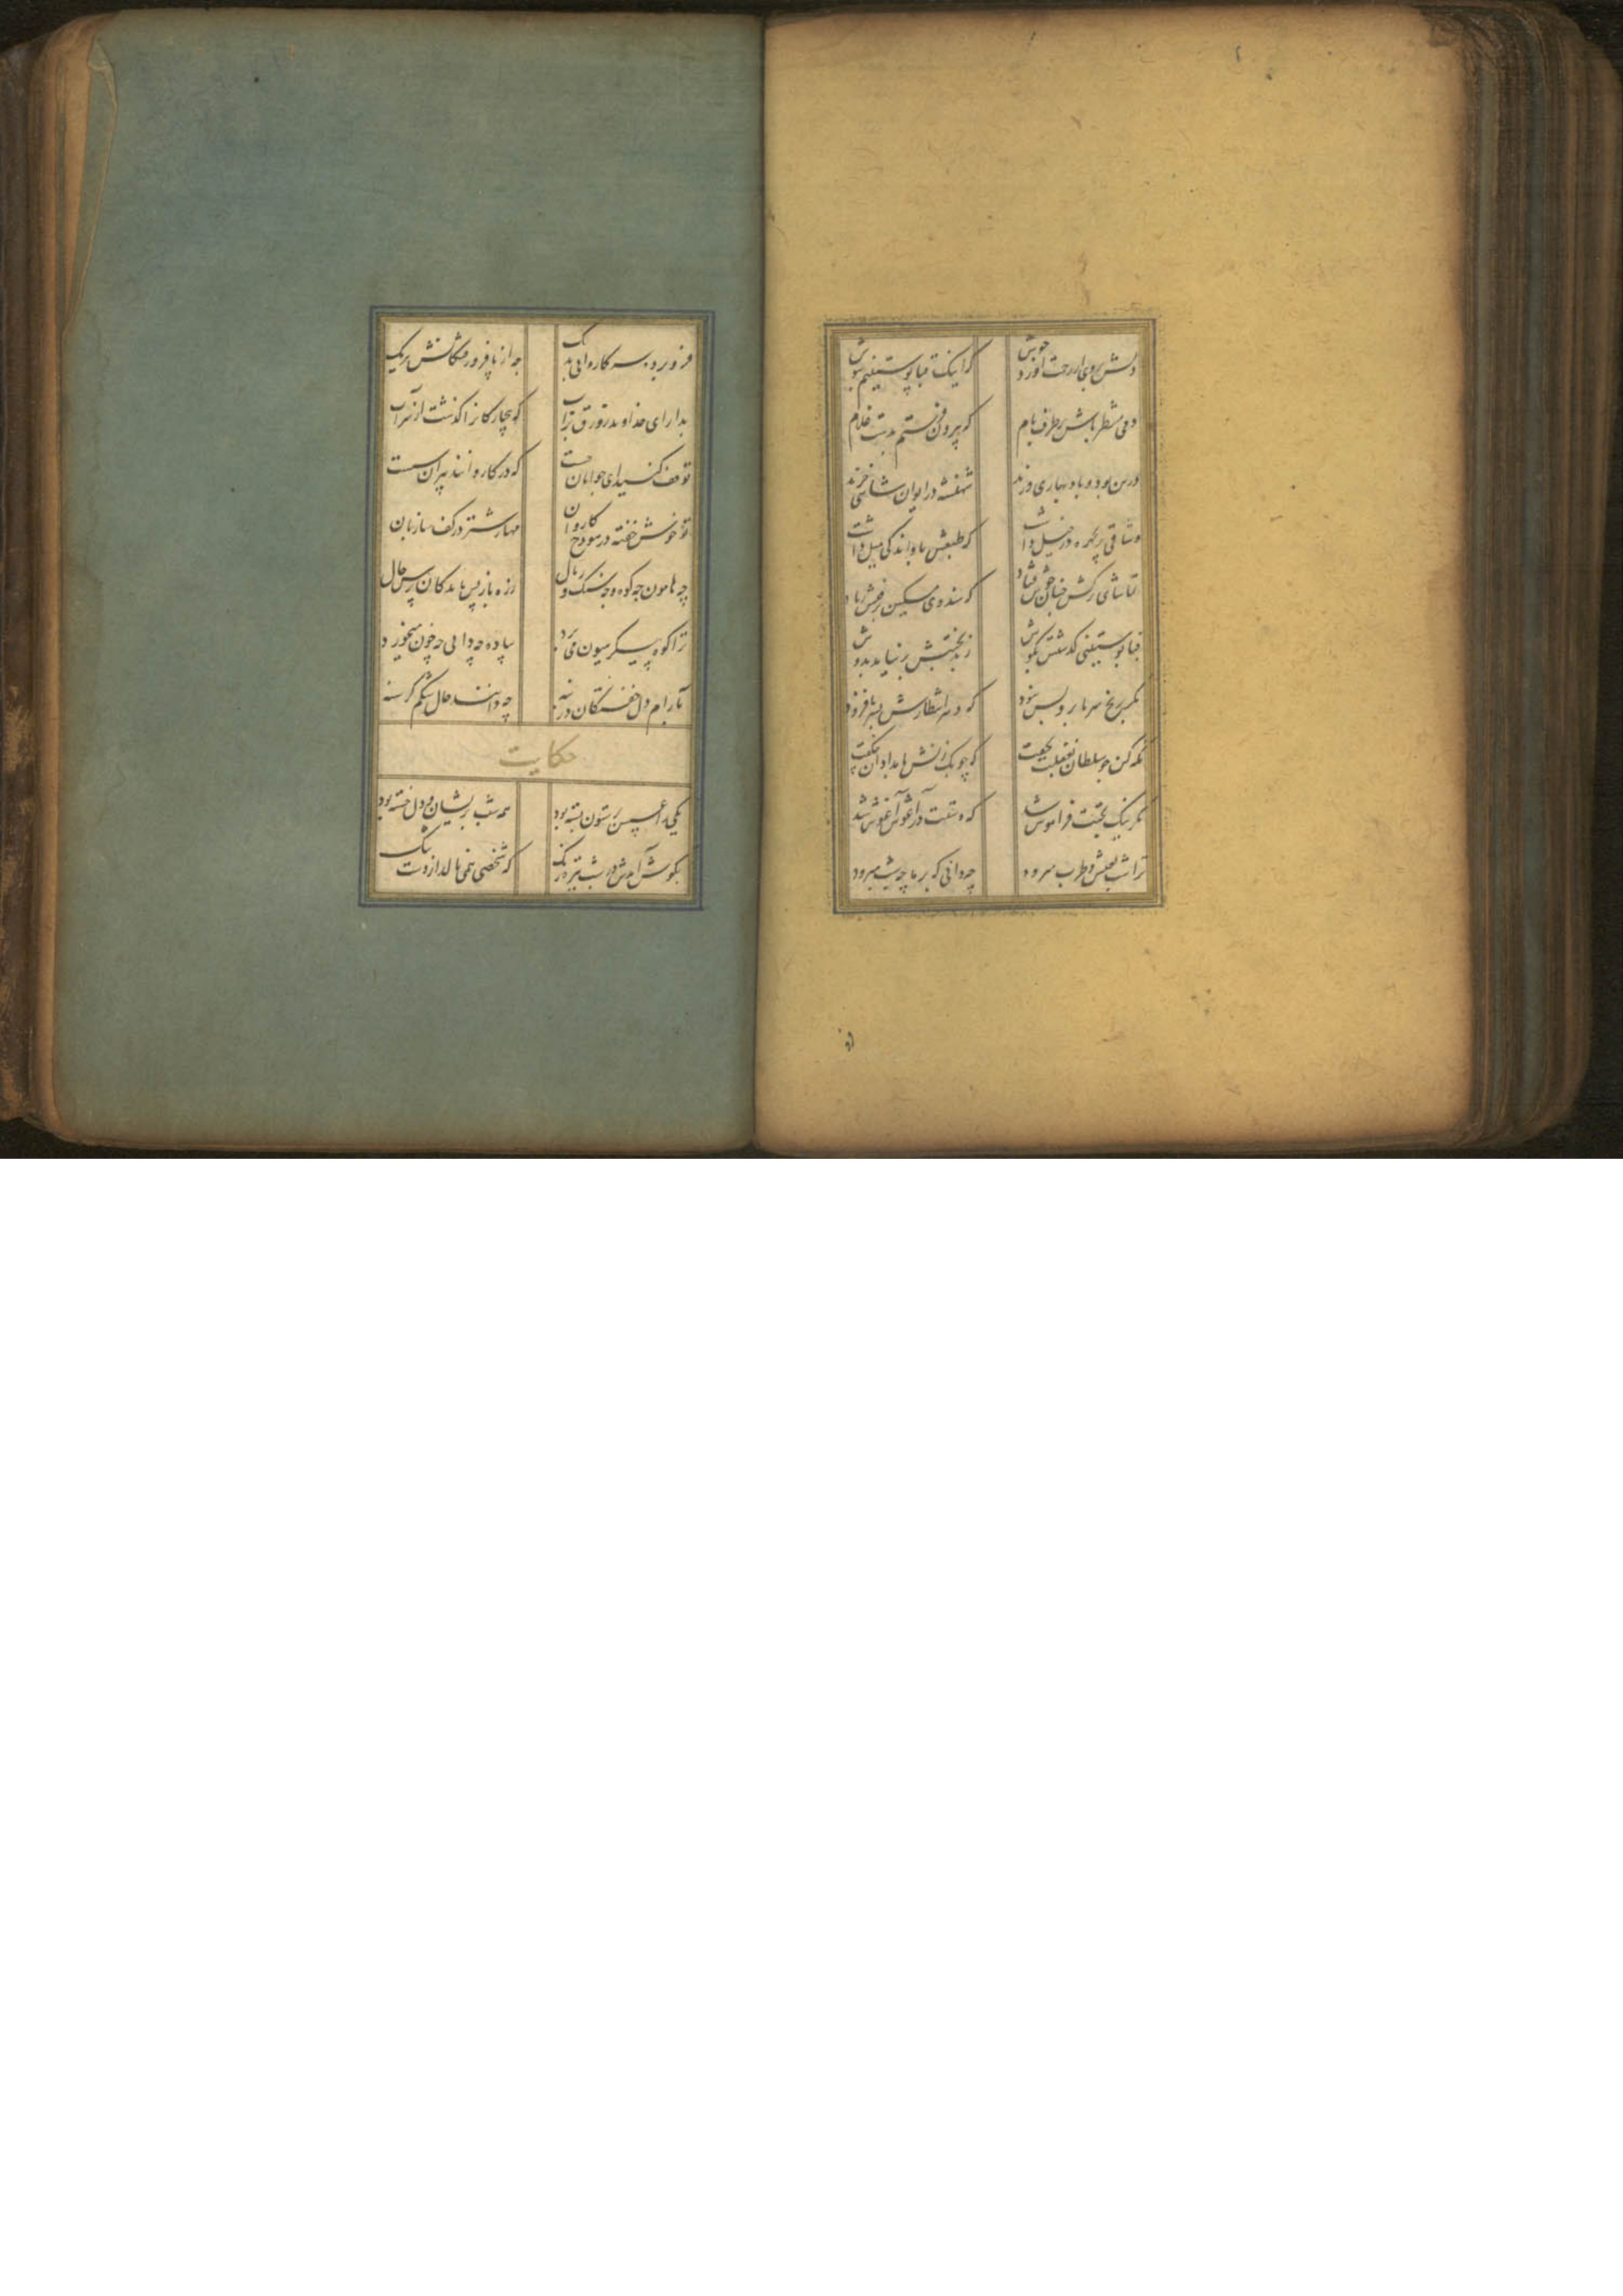 دلش بروی از رحمت آورد جوش که اینک قبا پوستینم بپوش
دمی منتظر باش بر طرف بام که بیرون فرستم بدست غلام
درین بود و باد بهاری وزید شهنشه در ایوان شاهی خزید
وشاقی پریچهره در خیل داشت که طبعش باو اندکی میل داشت
تماشای ترکش چنان خوش فتاد که هندوی مسکین برفتش ز یاد
قبا پوستینی گذشتش بگوش ز بدبختیش بر نیامد بدوش
مگر رنج سرما برو بس نبود که انتظارش فزود
نگه کن چو سلطان بغفلت بخفت که چوبک زنش بامدادان چه گفت
مگر نیک بختت فراموش شد که دستت در آغوش آغوش شد
ترا شب بعیش و طرب میرود چه دانی که بر ما چه شب میرود
فرو برده سر کاروانی بدیک چه از پا فرو رفتگانش بریک
بدار ای خداوند زورق بر آب که بیچارکانرا گذشت از سر آب
توقف کنید ای جوانان چست که در کاروانند پیران سست
تو خوش خفته در هودج کاروان مهار شتر در کف ساربان
چه هامون چه کوه و چه سنک و رمال ز ره باز پس ماندگان پرس حال
ترا کوه پیکر هیون می برد پیاده چه دانی چه خون میخورد
بآرام دل خفتگان در بنه چه دانند حال شکم گرسنه
حکایت
یکی را عسس بر ستون بسته بود همه شب پریشان و دل خسته بود
بگوش آمدش در شب تیره رنک که شخصی همی نالد از دست تنک